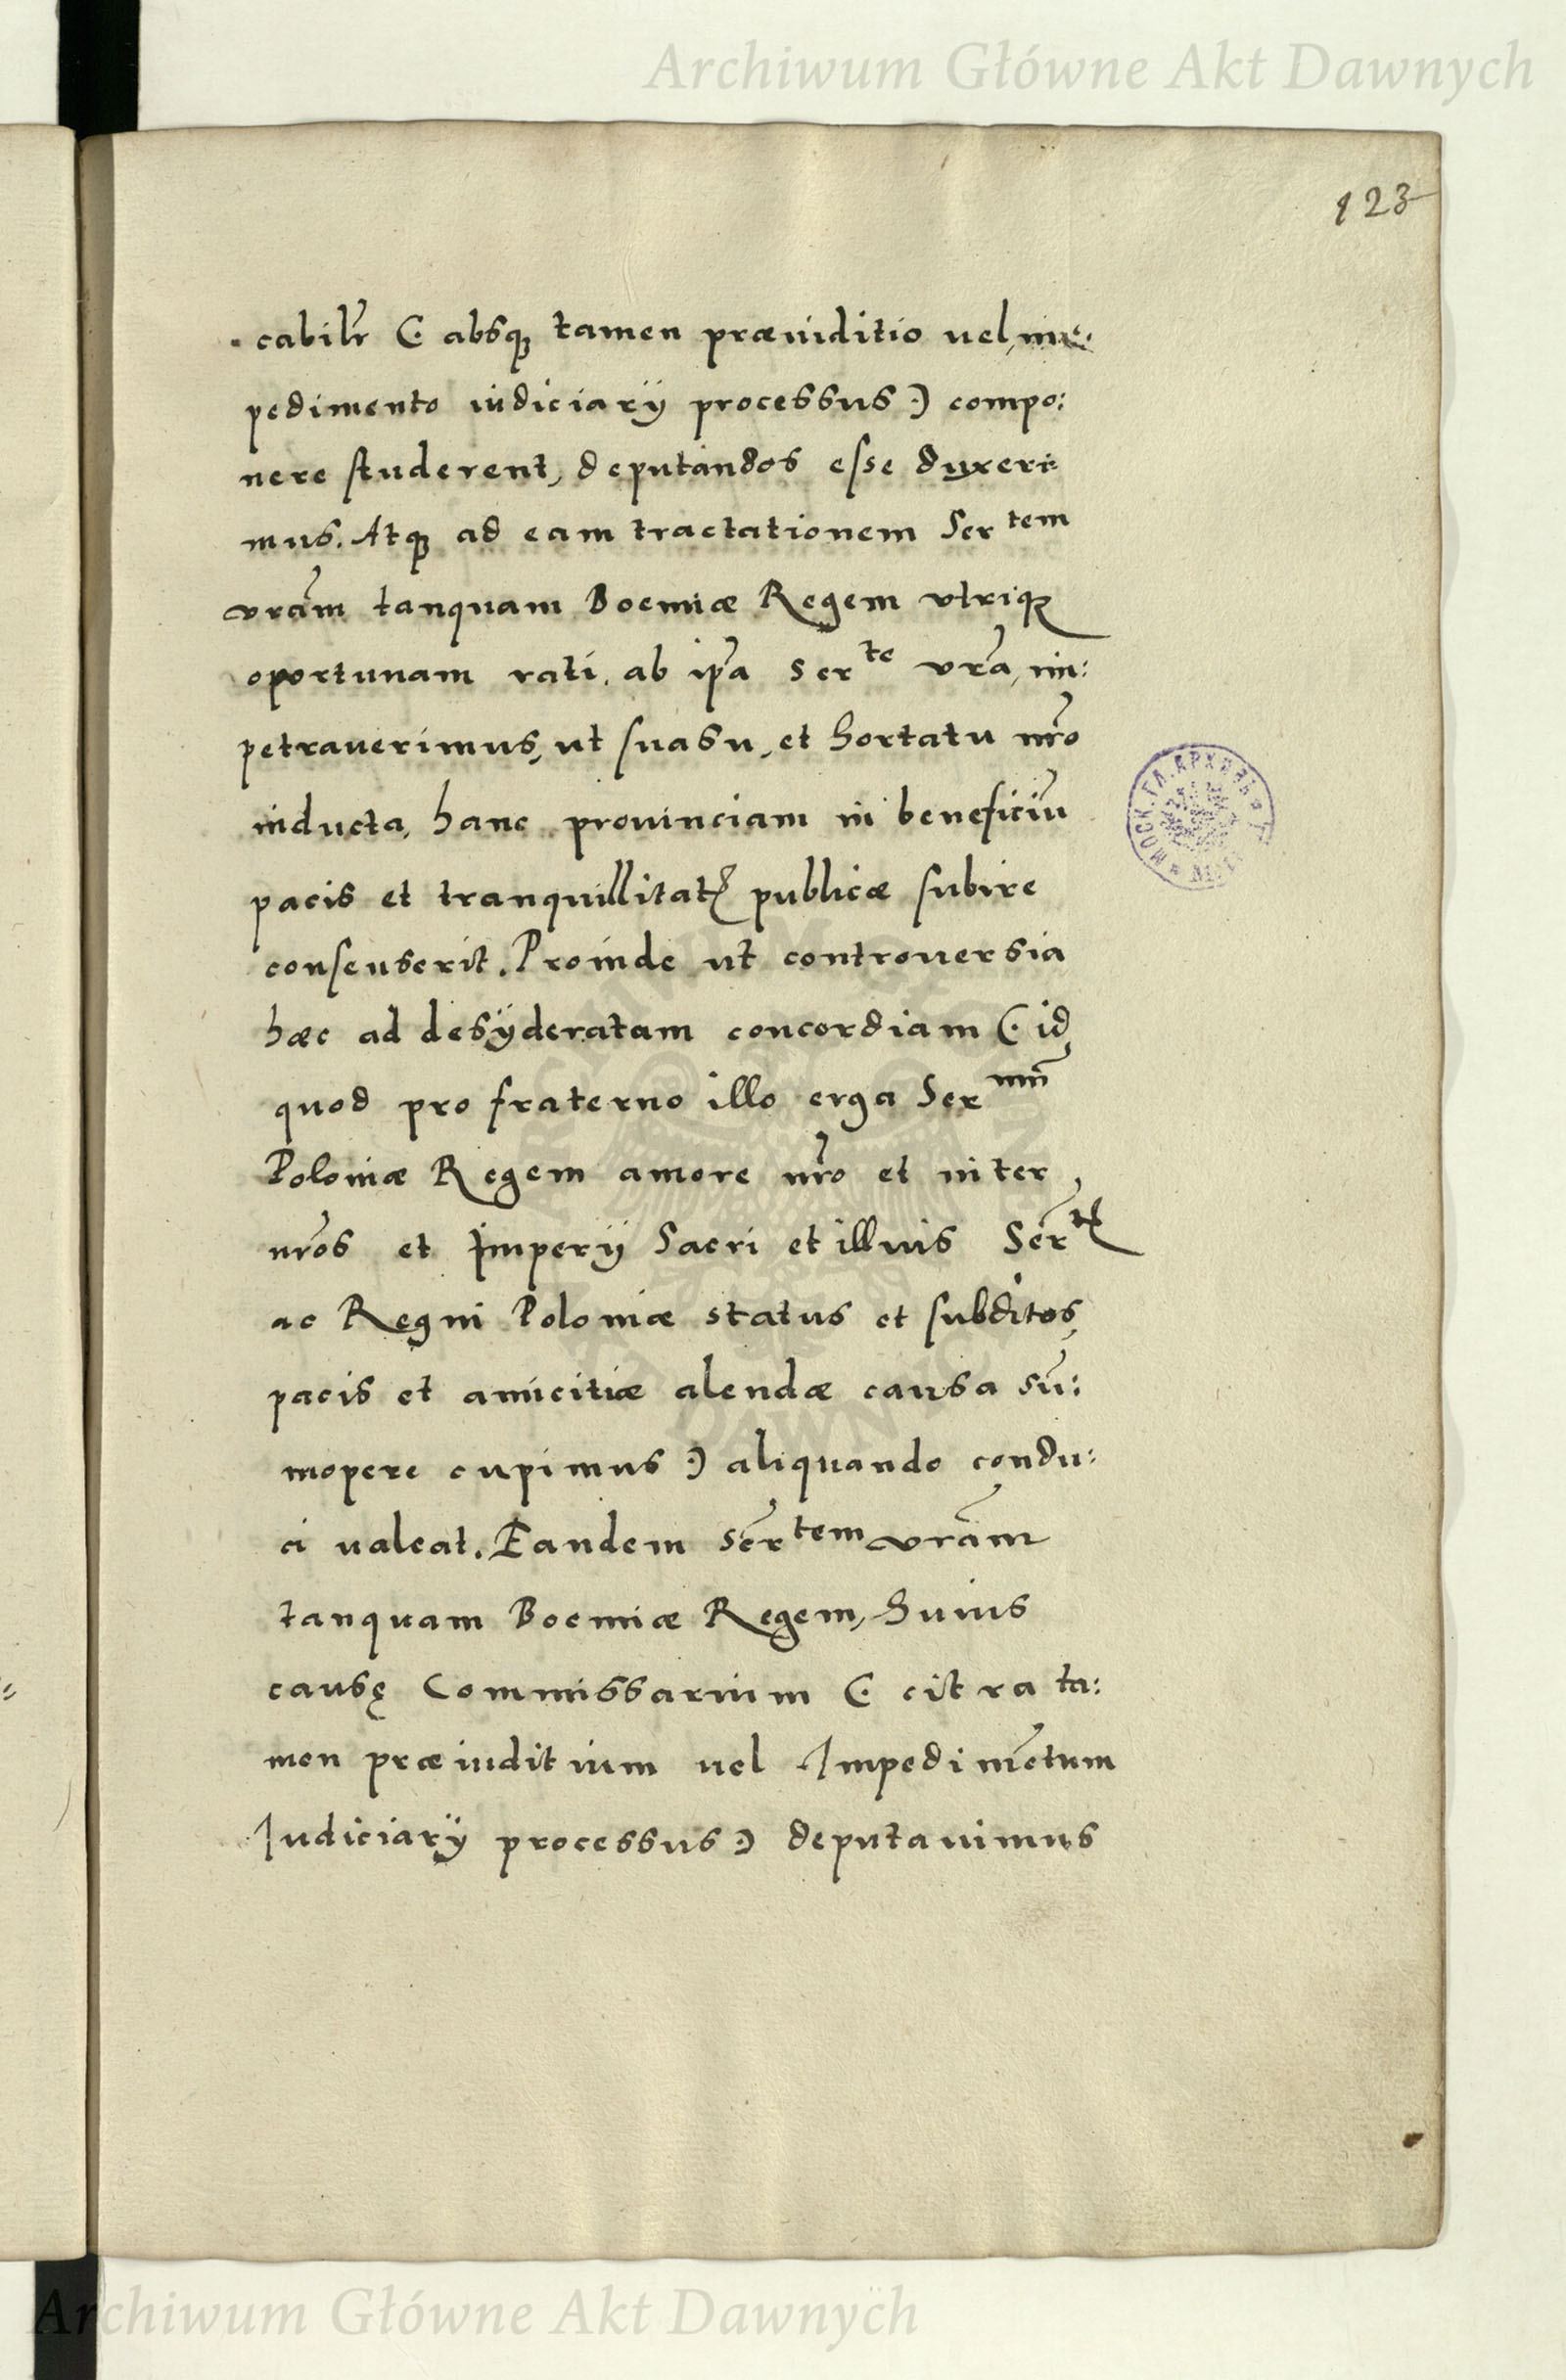 Archiwum Główne Akt Dawnych
123
cabilr̃ (: absqꝫ tamen præiuditio uel im:
pedimento iudiciarÿ processus :) compo:
nere studerent, deputandos esse duxeri
mus. Atqꝫ ad eam tractationem Ser tem
vrãm tanquam Boemiæ Regem vtriqꝫ
oportunam rati, ab ip̃a Ser te vrã, im:
petrauerimus, ut suasu, et hortatu nr̃o
inducta, hanc prouinciam in beneficiũ
pacis et tranquillitatꝭ publicæ subire
consenserit. Proinde ut controuersia
hæc ad desÿderatam concordiam (: id
quod pro fraterno illo erga Ser mũ
Poloniæ Regem amore nr̃o et inter
nr̃os et Imperÿ Sacri et illius Ser̃ tꝭ
ac Regni Poloniæ status et subditos,
pacis et amicitiæ alendæ causa sũ:
mopere cupimus :) aliquando condu:
ci ualeat. Eandem Ser̃ tem vrãm
tanquam Boemiæ Regem, huius
causę Commissarium (: citra ta:
men præiuditium uel Impedimẽtum
Iudiciarÿ processus :) deputauimus
МОСК. ГЛ. АРХИВЪ
Archiwum Główne Akt Dawnych